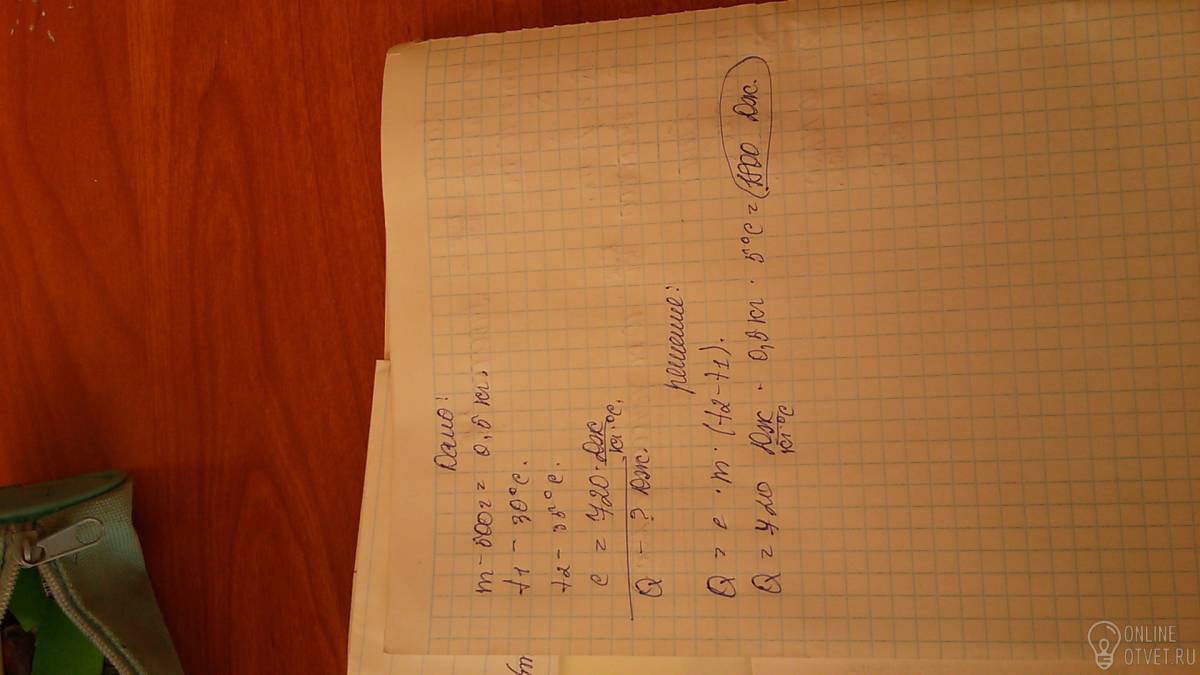 Дано:
m - 500г = 0,5 кг.
t1 - 30°C.
t2 - 35°C.
c = 720 · Дж/кг·°C.
Q - ? Дж.
решение:
Q = c · m · (t2 - t1).
Q = 720 Дж/кг°C · 0,5 кг · 5°C = 1800 Дж.
ONLINE
OTVET.RU